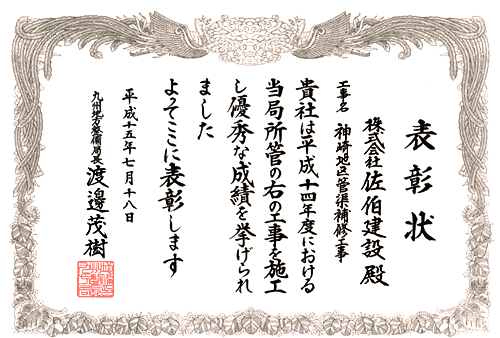 表彰状
株式会社 佐伯建設 殿
工事名 神崎地区管渠補修工事
貴社は平成十四年度における
当局所管の右の工事を施工
し優秀な成績を挙げられ
ました
よってここに表彰します
平成十五年七月十八日
九州地方整備局長 渡邊茂樹